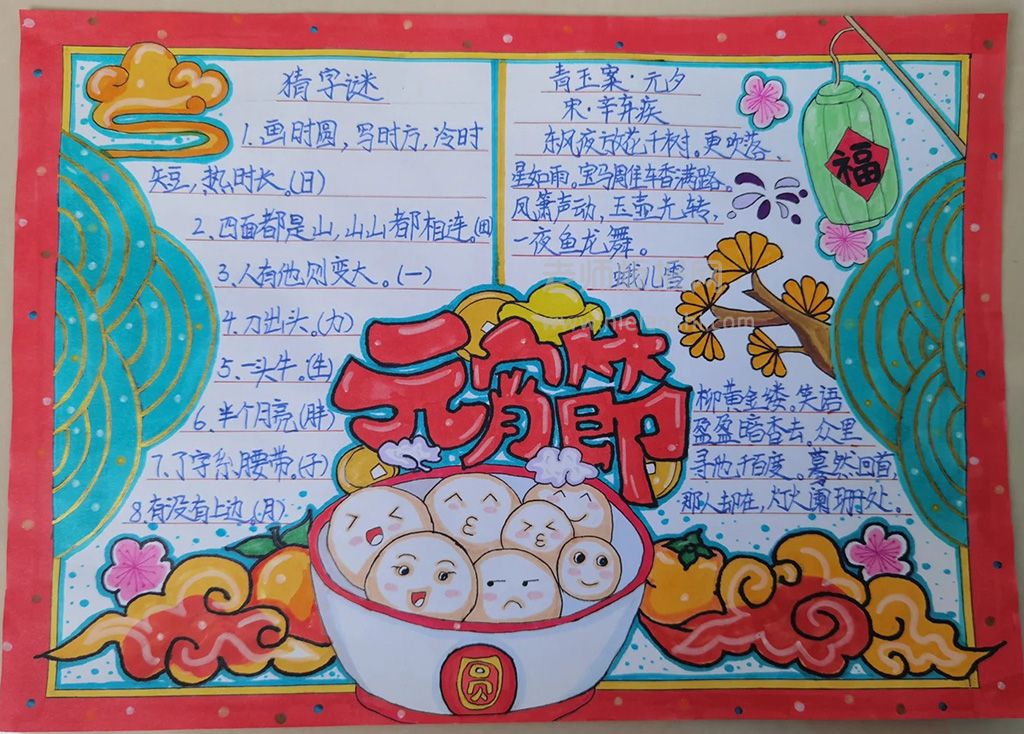 猜字谜
1.画时圆，写时方，冷时
矢豆，热时长。(日)
2、四面都是山，山山都相连。(田)
3、人有他则变大。(一)
4.刀出头。(力)
5、一头牛。(生)
6、半个月亮。(胖)
7.了字系腰带。(子)
8.有没有上边。(月)
青玉案·元夕
宋·辛弃疾
东风夜放花千树。更吹落、
星如雨。宝马周隹车香满路。
风箫声动，玉壶光转，
一夜鱼龙舞。
蛾儿雪
柳黄金缕。笑语
盈盈暗香去。众里
寻他千百度。蓦然回首，
那人却在，灯火阑珊处。
福
元宵節
圆